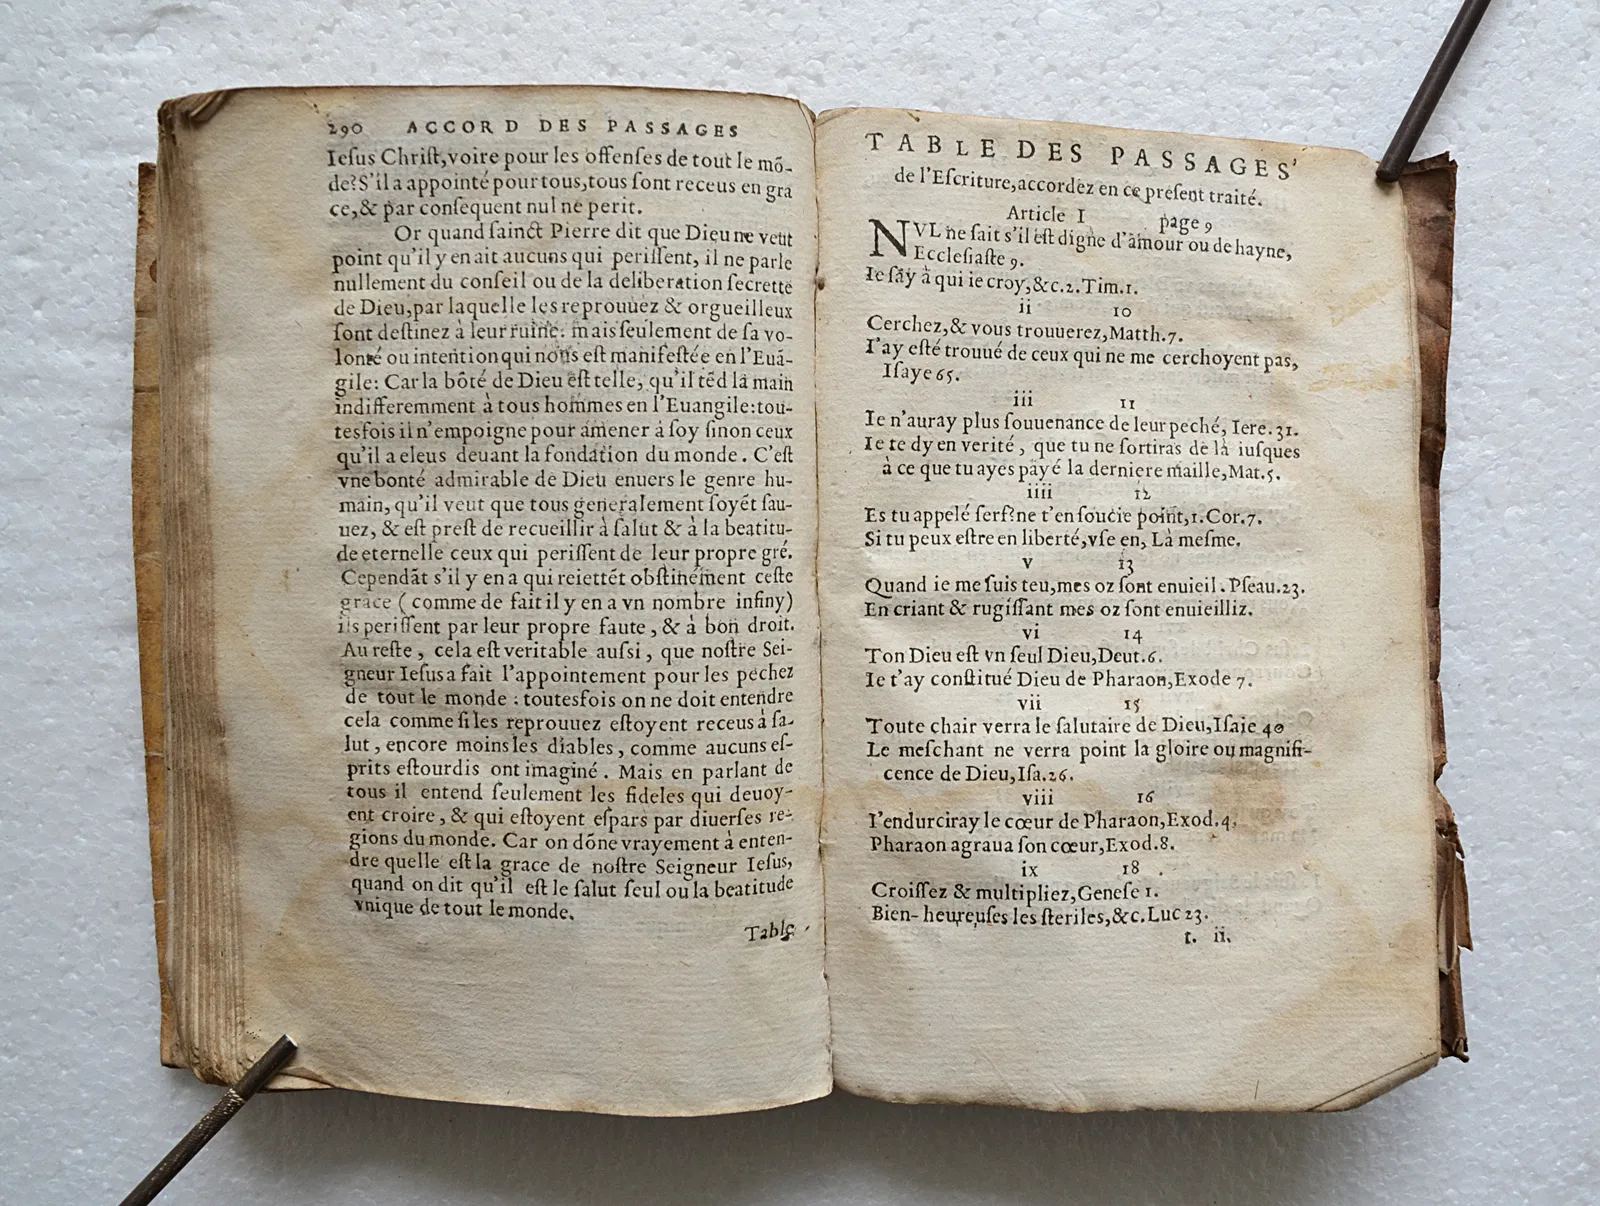 290 ACCORD DES PASSAGES
Ieſus Chriſt, voire pour les offenſes de tout le mõ-
de? S'il a appointé pour tous, tous ſont receus en gra
ce, & par conſequent nul ne perit.
Or quand ſainct Pierre dit que Dieu ne veut
point qu'il y en ait aucuns qui periſſent, il ne parle
nullement du conſeil ou de la deliberation ſecrette
de Dieu, par laquelle les reprouuez & orgueilleux
ſont deſtinez à leur ruine: mais ſeulement de ſa vo-
lonté ou intention qui nous eſt manifeſtée en l'Euã-
gile: Car la bõté de Dieu eſt telle, qu'il tẽd la main
indifferemment à tous hommes en l'Euangile: tou-
tesfois il n'empoigne pour amener à ſoy ſinon ceux
qu'il a eleus deuant la fondation du monde. C'eſt
vne bonté admirable de Dieu enuers le genre hu-
main, qu'il veut que tous generalement ſoyẽt ſau-
uez, & eſt preſt de recueillir à ſalut & à la beatitu-
de eternelle ceux qui periſſent de leur propre gré.
Cependãt s'il y en a qui reiettẽt obſtinément ceſte
grace (comme de fait il y en a vn nombre infiny)
ils periſſent par leur propre faute, & à bon droit.
Au reſte, cela eſt veritable auſsi, que noſtre Sei-
gneur Ieſus a fait l'appointement pour les pechez
de tout le monde: toutesfois on ne doit entendre
cela comme ſi les reprouuez eſtoyent receus à ſa-
lut, encore moins les diables, comme aucuns eſ-
prits eſtourdis ont imaginé. Mais en parlant de
tous il entend ſeulement les fideles qui deuoy-
ent croire, & qui eſtoyent eſpars par diuerſes re-
gions du monde. Car on dõne vrayement à enten-
dre quelle eſt la grace de noſtre Seigneur Ieſus,
quand on dit qu'il eſt le ſalut ſeul ou la beatitude
vnique de tout le monde.
Table
TABLE DES PASSAGES
de l'Eſcriture, accordez en ce preſent traité.
Article I page 9
NVL ne ſait s'il eſt digne d'amour ou de hayne,
Eccleſiaſte 9.
Ie ſay à qui ie croy, &c. 2. Tim. 1.
ii 10
Cerchez, & vous trouuerez, Matth. 7.
I'ay eſté trouué de ceux qui ne me cerchoyent pas,
Iſaye 65.
iii 11
Ie n'auray plus ſouuenance de leur peché, Iere. 31.
Ie te dy en verité, que tu ne ſortiras de là iuſques
à ce que tu ayes payé la derniere maille, Mat. 5.
iiii 12
Es tu appelé ſerf? ne t'en ſoucie point, 1. Cor. 7.
Si tu peux eſtre en liberté, vſe en, Là meſme.
v 13
Quand ie me ſuis teu, mes oz ſont enuieil. Pſeau. 23.
En criant & rugiſſant mes oz ſont enuieilliz.
vi 14
Ton Dieu eſt vn ſeul Dieu, Deut. 6.
Ie t'ay conſtitué Dieu de Pharaon, Exode 7.
vii 15
Toute chair verra le ſalutaire de Dieu, Iſaie 40
Le meſchant ne verra point la gloire ou magnifi-
cence de Dieu, Iſa. 26.
viii 16
I'endurciray le cœur de Pharaon, Exod. 4.
Pharaon agraua ſon cœur, Exod. 8.
ix 18
Croiſſez & multipliez, Geneſe 1.
Bien-heureuſes les ſteriles, &c. Luc 23.
t. ii.